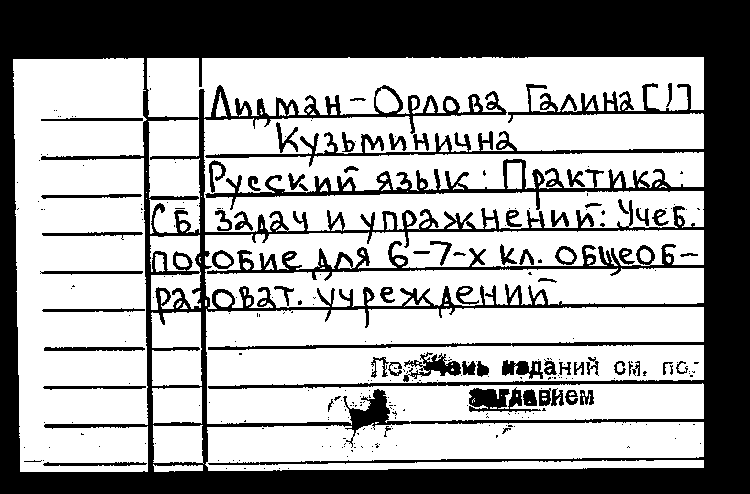 Лидман-Орлова, Галина [!]
Кузьминична
Русский язык: Практика:
Сб. задач и упражнений: Учеб.
пособие для 6-7-х кл. общеоб-
разоват. учреждений.
Перечень изданий см. под
заглавием